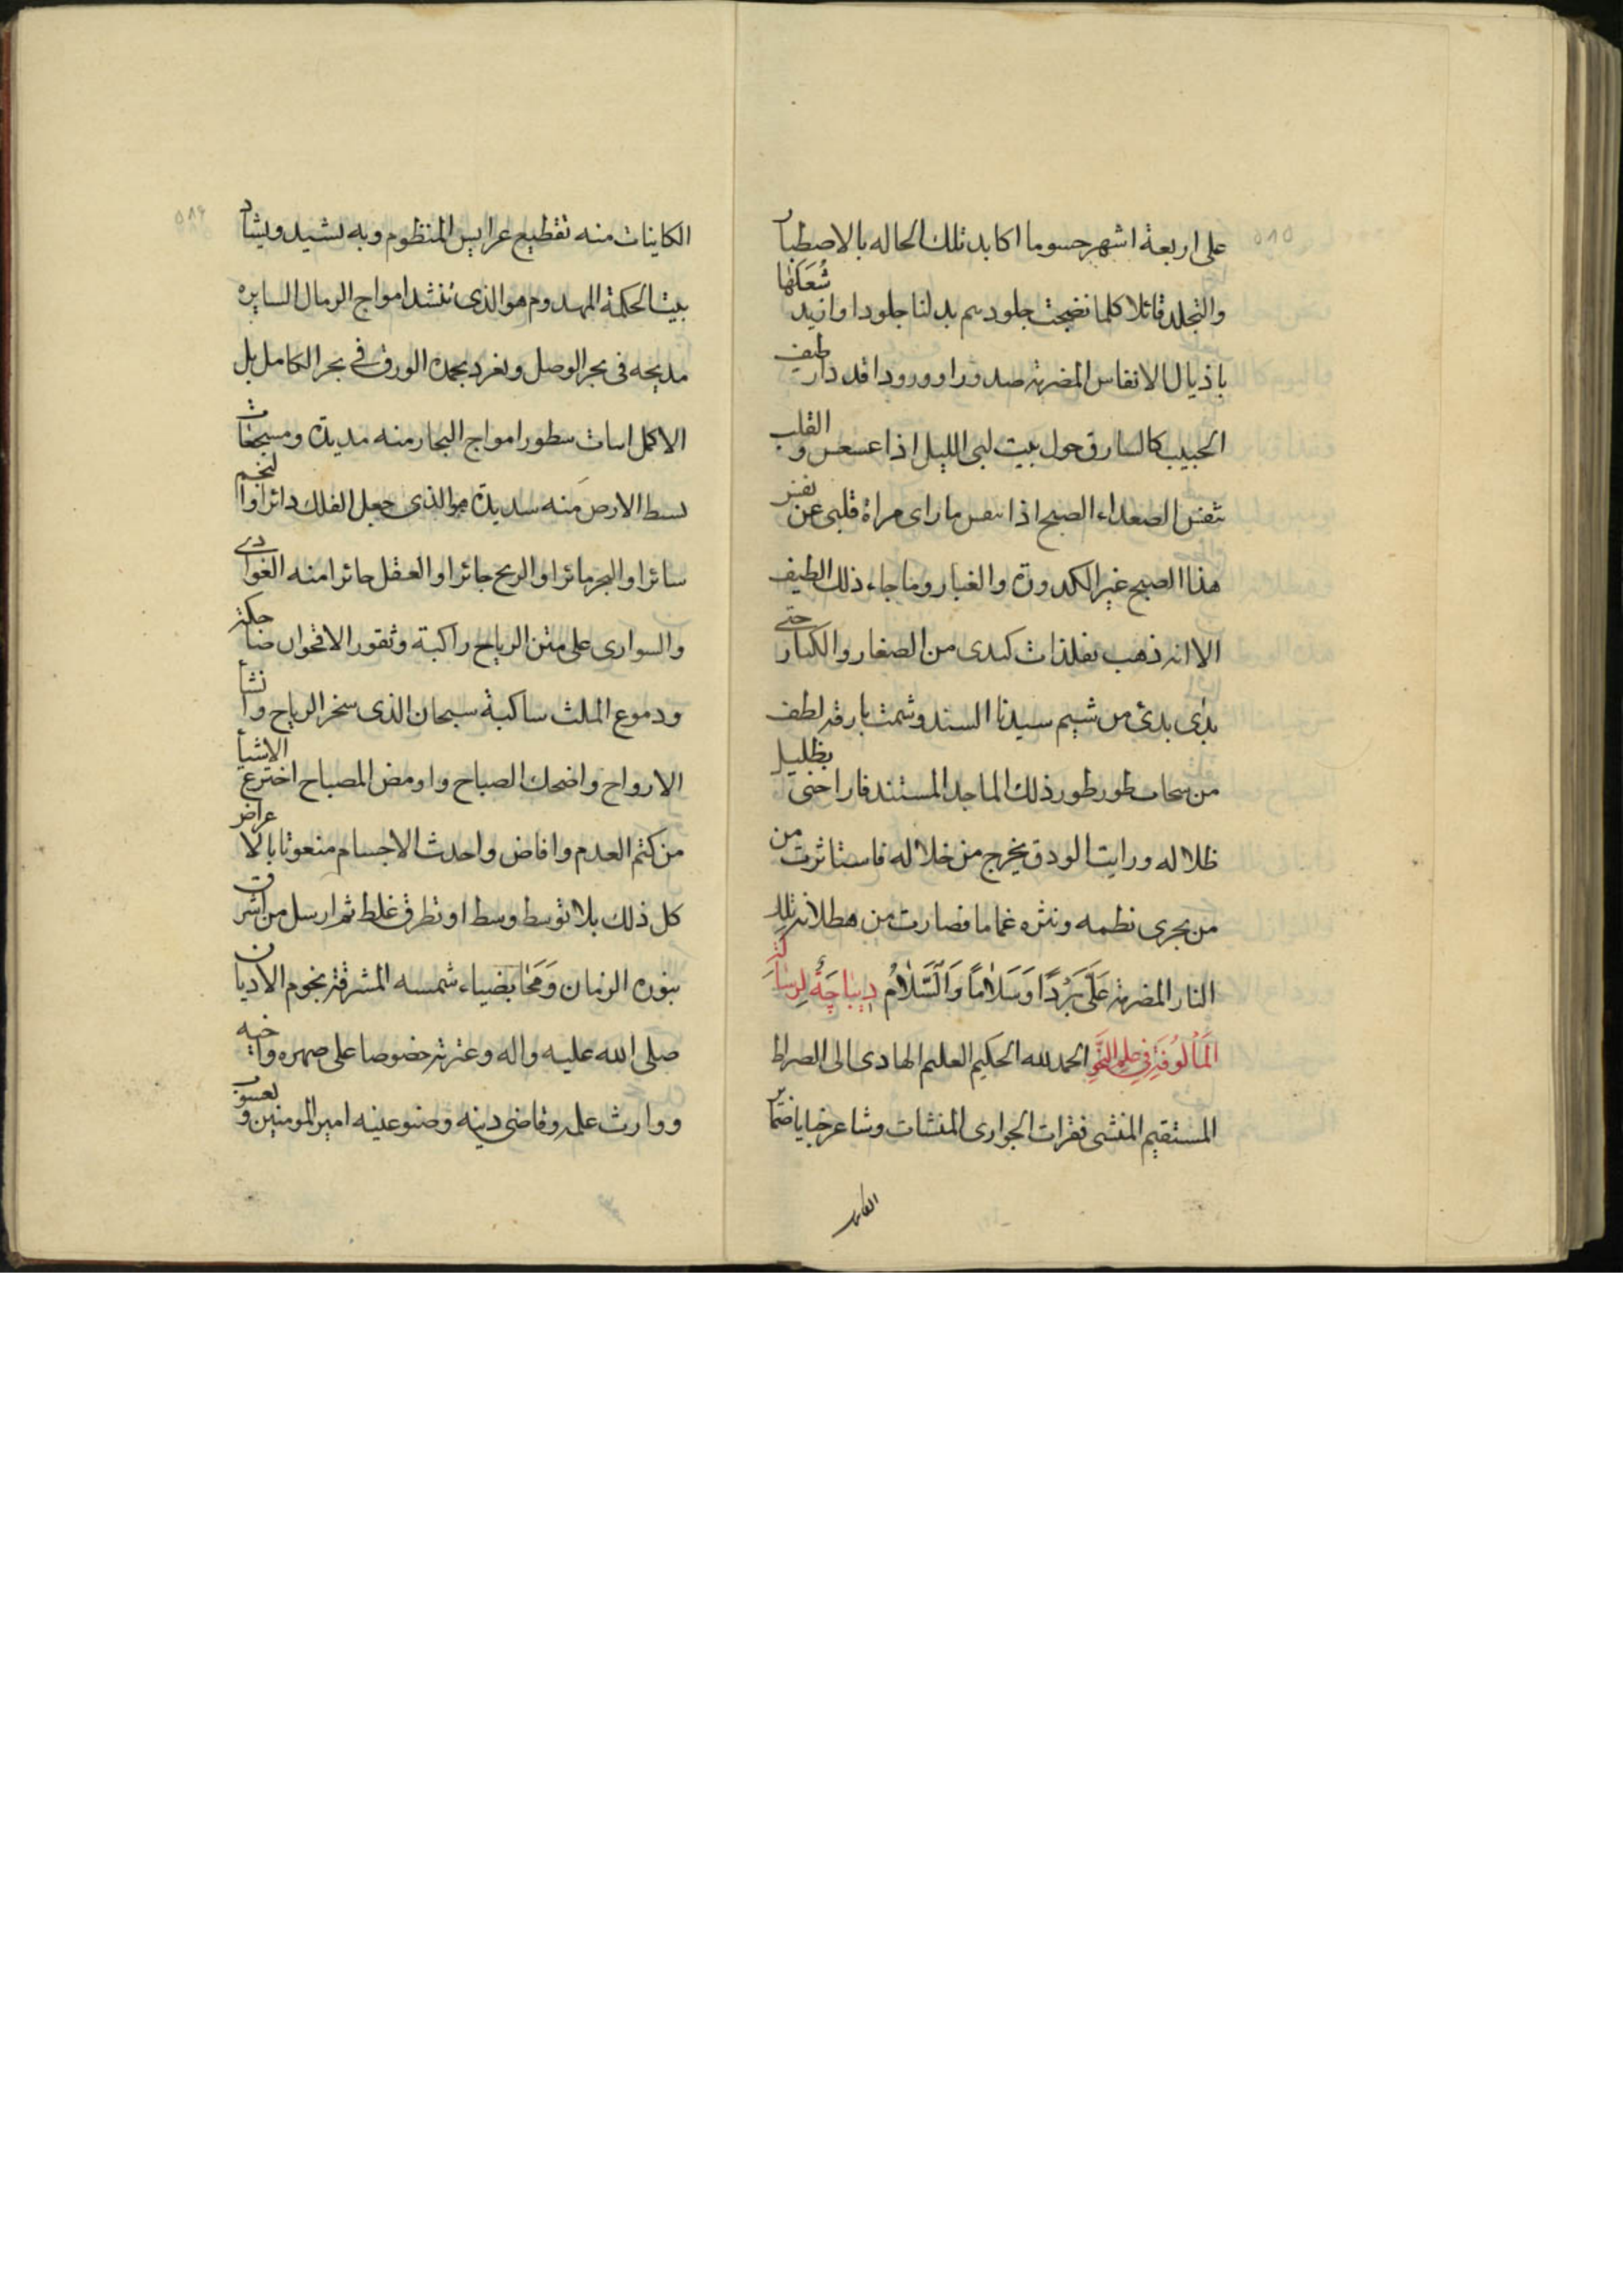 على اربعة اشهر حسوما اكابد تلك الحاله بالاصطبار
والتجلد قائلا كلما نضجت جلودهم بدلنا جلودا وازيد شعلتها
باذيال الانفاس المضرمة صدورا وورودا قد دار طيف
الحبيب كالسارق حول بيت لبى الليل اذا عسعس والقلب
تنفس الصعداء الصبح اذا تنفس ما راى مراة قلبى عن
هذا الصبح غير الكدورة والغبار وما جاء ذلك الطيف
الا انه ذهب بفلذات كبدى من الصغار والكبار حتى
بدى من شيم سيدنا السند وشمت بارقة لطف
من سحاب طور طور ذلك الماجد المستند فاراحنى بظليل
ظلاله ورايت الودق يخرج من خلاله فاستاثرت من
من بحرى نظمه ونثره غماما فصارت من هطلانه تلك
النار المضرمة عَلَىَّ بَرْدًا وَسَلاٰمًا وَالسَّلاٰمُ دِيبٰاجَةُ لِرسٰالَة
الْمَألُوفَةِ فى علم النَّحْوِ الحمد لله الحكيم العليم الهادى الى الصراط
المستقيم المنشى فقرات الجوارى المنشات وشاعر خبايا ضمائر
الكاينات منه تقطيع عرايس المنظوم وبه تشيد ويشاد
بيت الحكمة المهدوم هو الذى تنشد امواج الرمال السايره
مديحه فى بحر الوصل وتغرد بحمده الورق فى بحر الكامل بل
الاكمل ابيات سطور امواج البحار منه مديدة ومسجعات
بسط الارض منه سديدة هو الذى جعل الفلك دائرا والنجم
سائرا والبحر مائرا والريح جائرا والعقل حائرا منه الغوادى
والسوارى على متن الرياح راكبة وثغور الاقحوان ضاحكة
ودموع الملث ساكبة سبحان الذى سخر الرياح وانشا
الارواح واضحك الصباح واومض المصباح اخترع الاشيا
من كتم العدم وافاض واحدث الاجسام منعوتا بالاعراض
كل ذلك بلا توسط وسط او تطرق غلط ثم ارسل من اشرق
بنوره الزمان وَمَحٰى بضياء شمسه المشرقة نجوم الاديان
صلى الله عليه واله وعترته خصوصا على صهره واخيه
ووارث علمه وقاضى دينه وصنو عينه امير المومنين ويعسوب